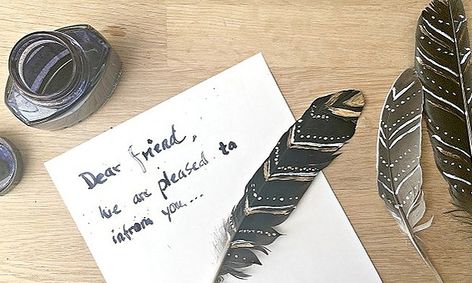 Dear friend,
We are pleased to
infrom you...